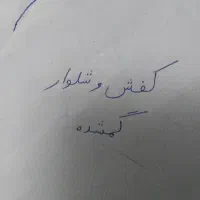 کفش و شلوار
گمشده